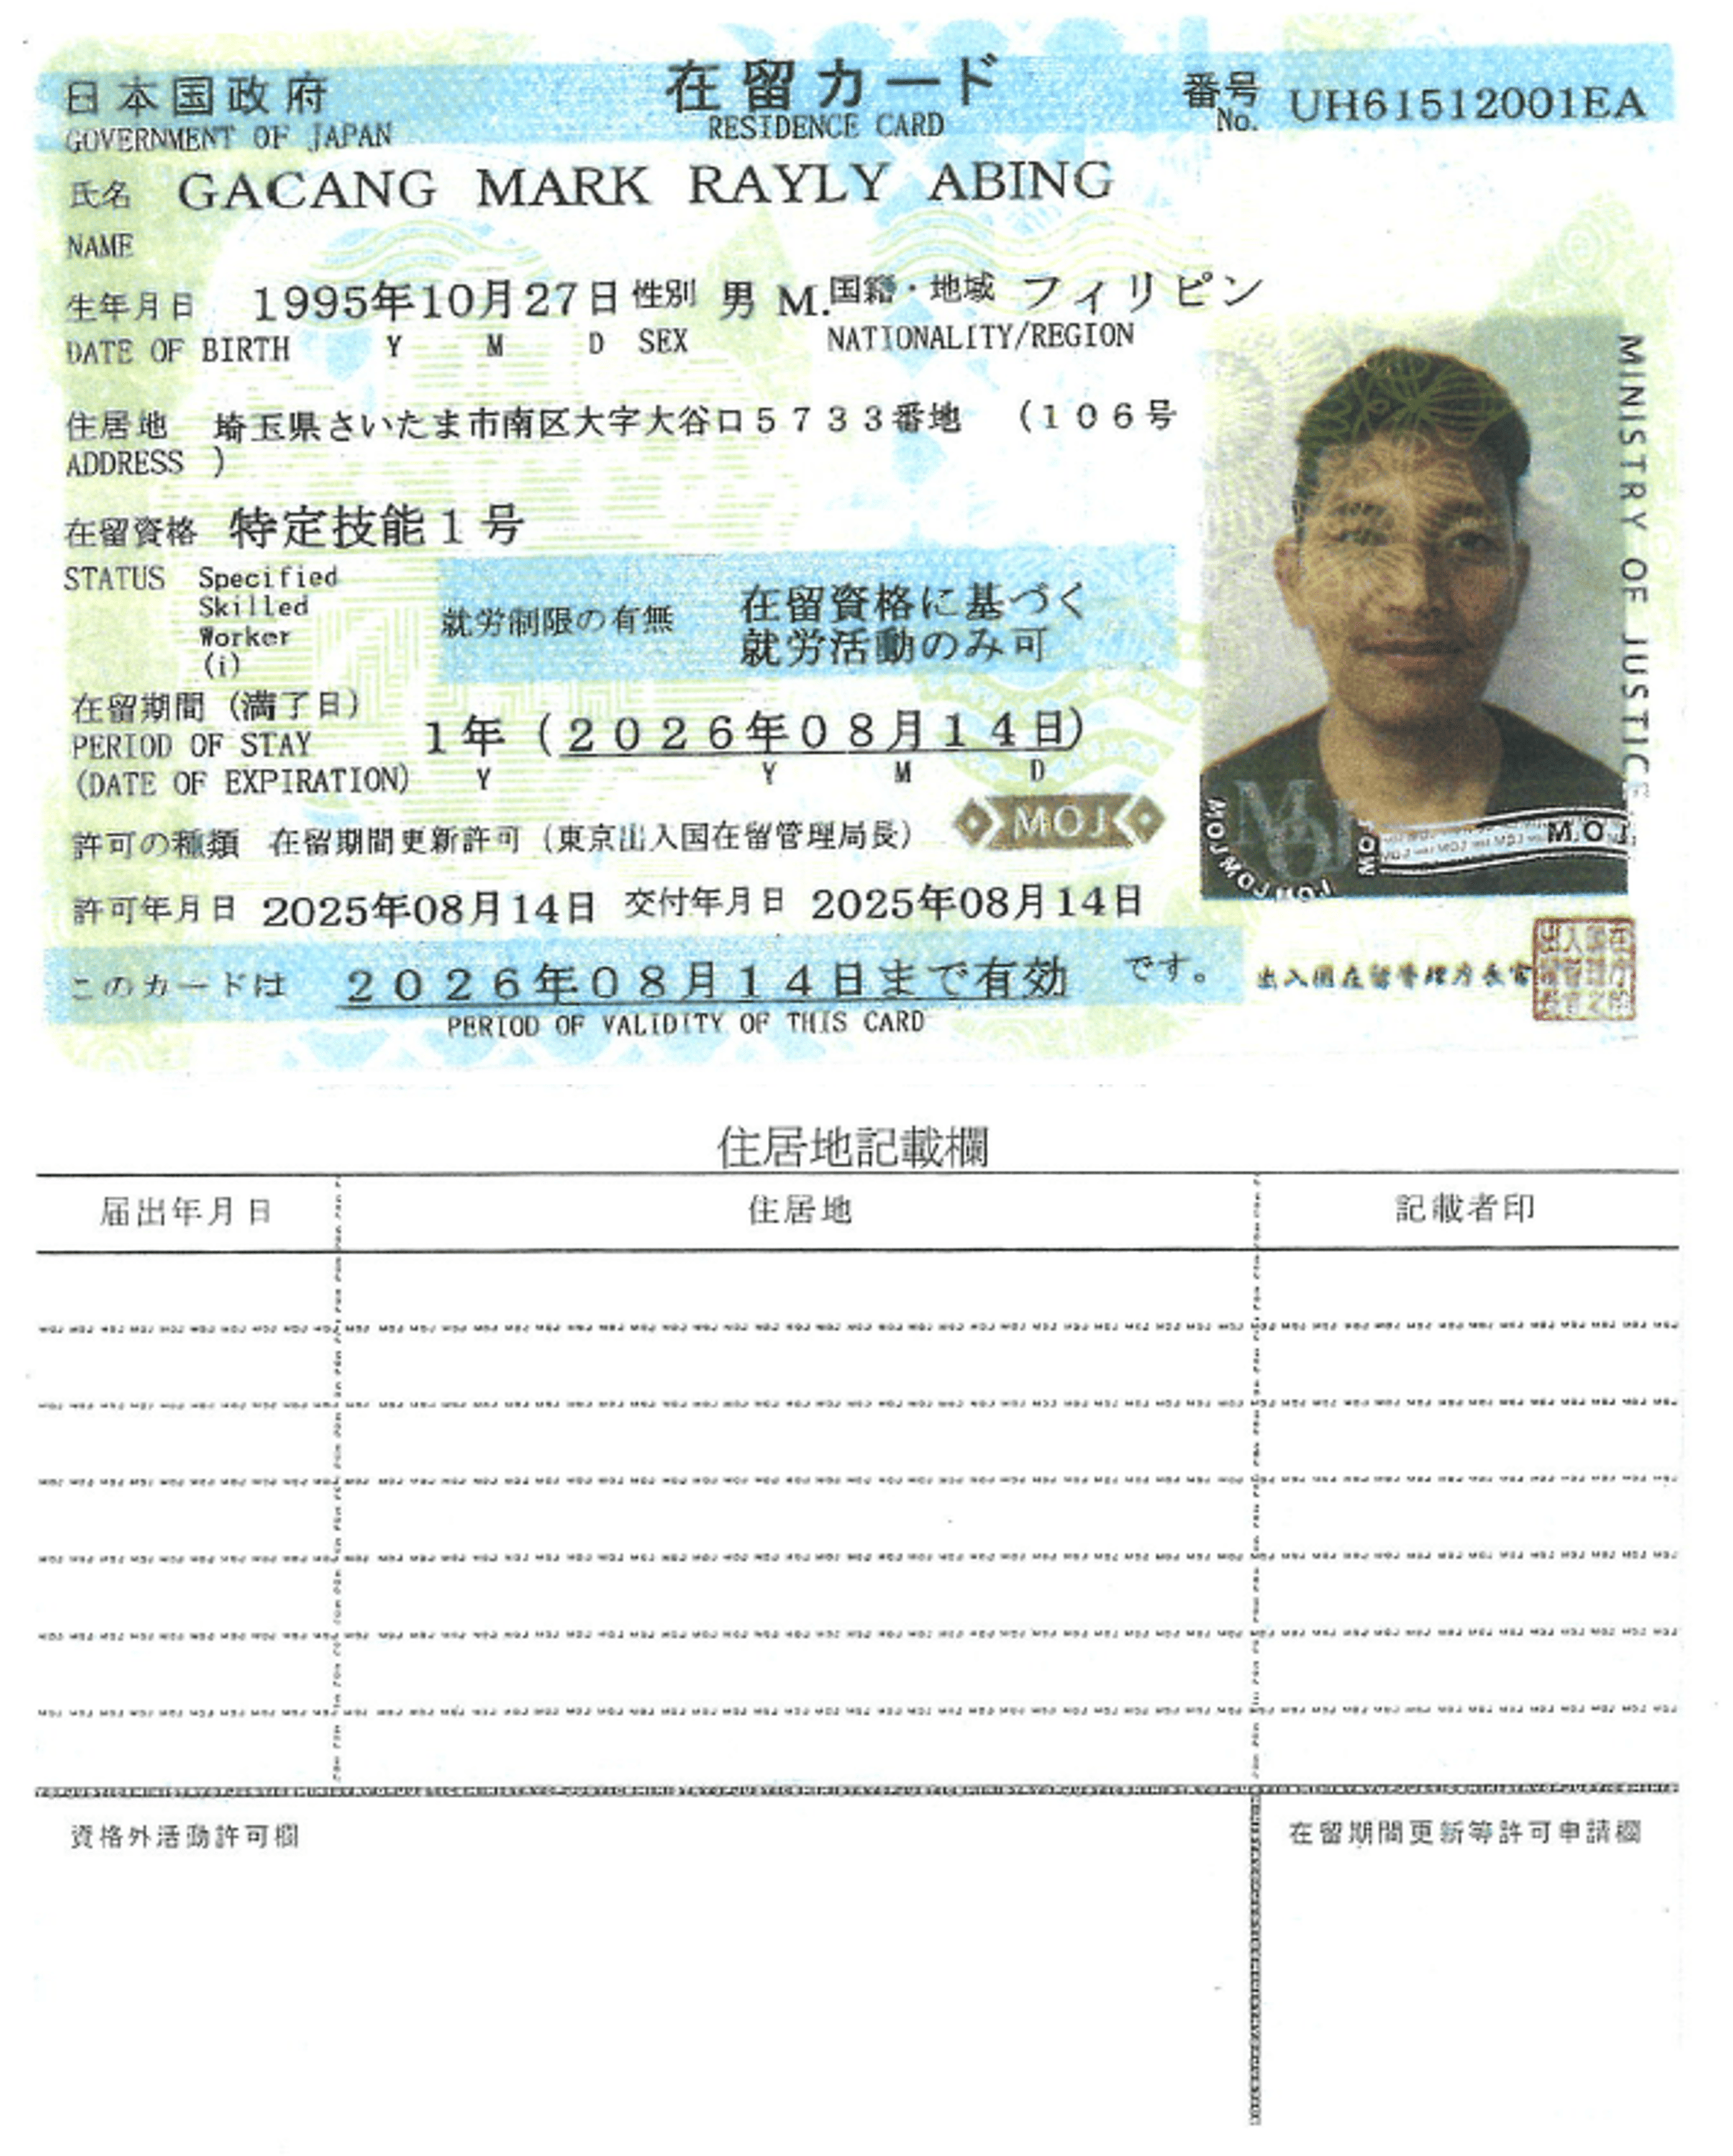 日本国政府 在留カード 番号 UH61512001EA
GOVERNMENT OF JAPAN RESIDENCE CARD No.
氏名 GACANG MARK RAYLY ABING
NAME
生年月日 1995年10月27日 性別 男 M. 国籍・地域 フィリピン
DATE OF BIRTH Y M D SEX NATIONALITY/REGION
住居地 埼玉県さいたま市南区大字大谷口5733番地 (106号
ADDRESS )
在留資格 特定技能1号
STATUS Specified
Skilled
Worker
(i)
就労制限の有無 在留資格に基づく
就労活動のみ可
在留期間(満了日)
PERIOD OF STAY 1年(2026年08月14日)
(DATE OF EXPIRATION) Y Y M D
許可の種類 在留期間更新許可(東京出入国在留管理局長)
MOJ
許可年月日 2025年08月14日 交付年月日 2025年08月14日
このカードは 2026年08月14日まで有効 です。
PERIOD OF VALIDITY OF THIS CARD
出入国在留管理庁長官
MINISTRY OF JUSTICE
MOJMOJMOJ
M.OJ
住居地記載欄
届出年月日 住居地 記載者印
資格外活動許可欄 在留期間更新等許可申請欄